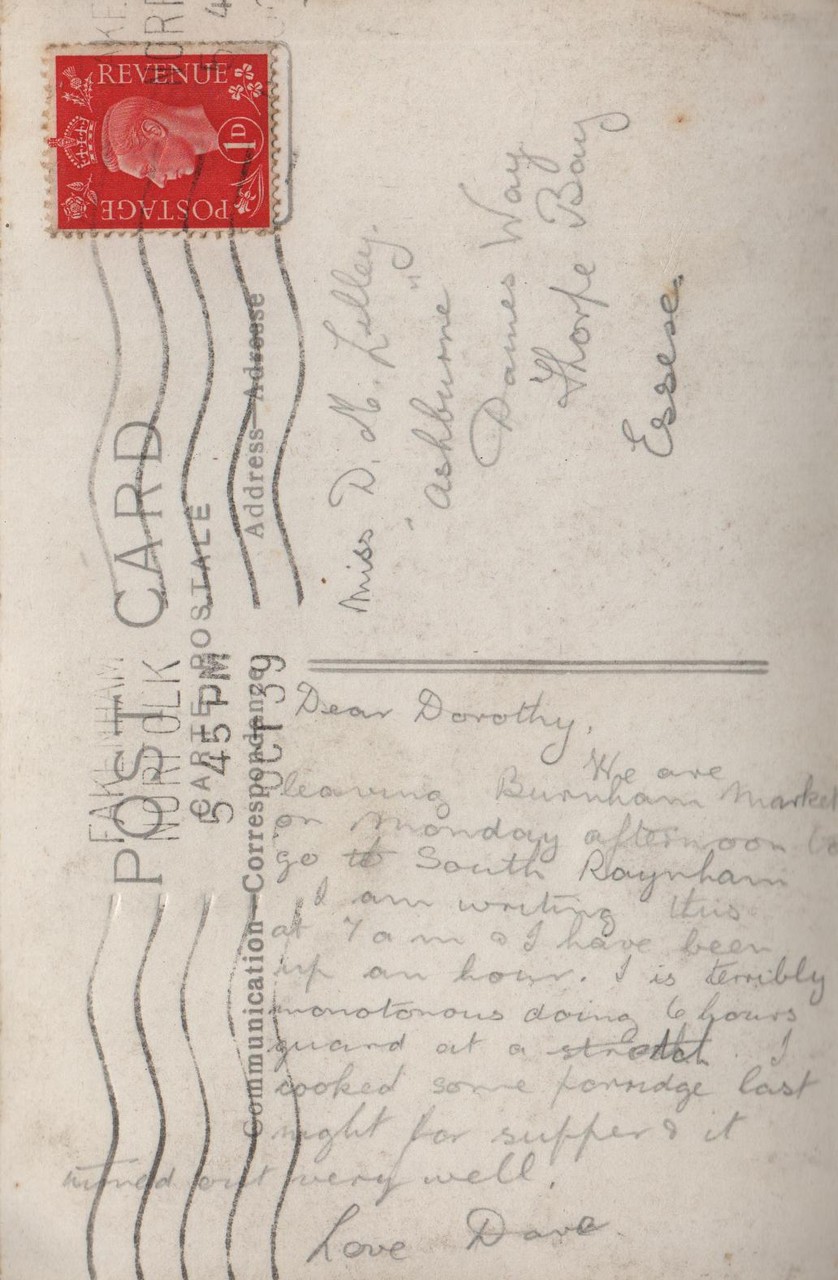 REVENUE
1D
POSTAGE
POST CARD
CARTE POSTALE
Communication—Correspondance
Address—Adresse
FAKENHAM
NORFOLK
5 45 PM
OCT 39
Miss D. M. Lilley.
"Ashburne"
Daines Way
Thorpe Bay
Essex.
Dear Dorothy,
We are
leaving Burnham Market
on Monday afternoon to
go to South Raynham
I am writing this
at 7 am & I have been
up an hour. I is terribly
monotonous doing 6 hours
guard at a stretch. I
cooked some porridge last
night for supper & it
turned out very well.
Love Dave.